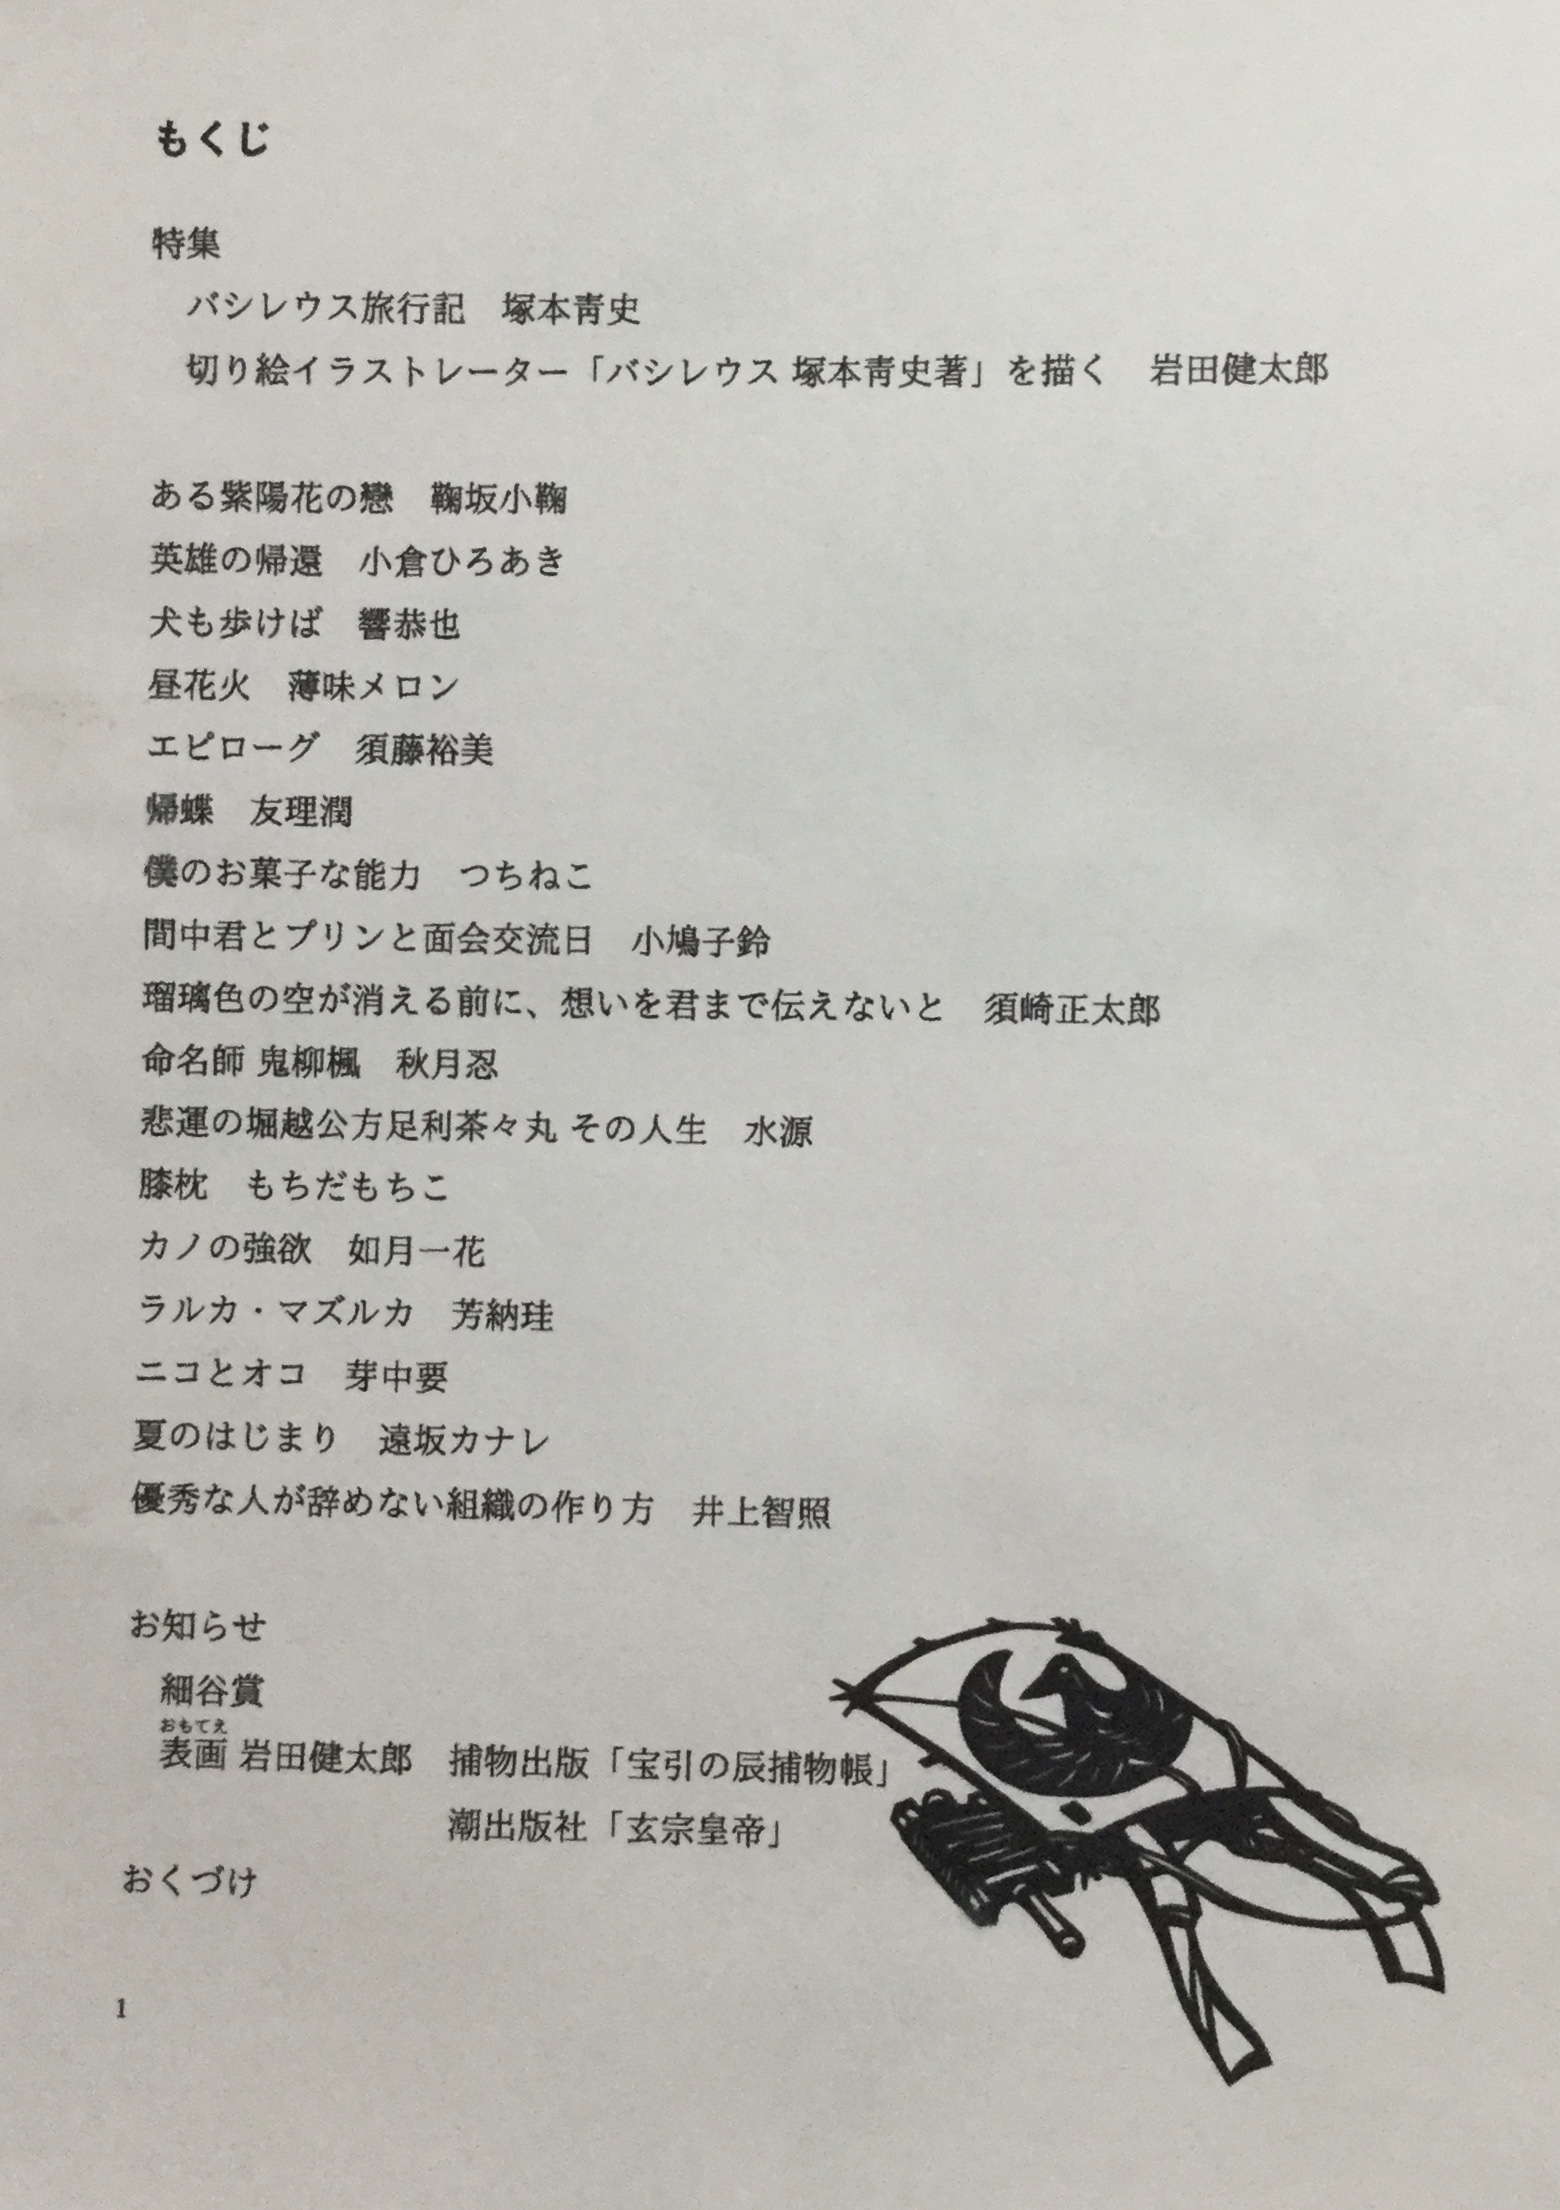 もくじ
特集
バシレウス旅行記　塚本靑史
切り絵イラストレーター「バシレウス 塚本靑史著」を描く　岩田健太郎
ある紫陽花の戀　鞠坂小鞠
英雄の帰還　小倉ひろあき
犬も歩けば　響恭也
昼花火　薄味メロン
エピローグ　須藤裕美
帰蝶　友理潤
僕のお菓子な能力　つちねこ
間中君とプリンと面会交流日　小鳩子鈴
瑠璃色の空が消える前に、想いを君まで伝えないと　須崎正太郎
命名師 鬼柳楓　秋月忍
悲運の堀越公方足利茶々丸 その人生　水源
膝枕　もちだもちこ
カノの強欲　如月一花
ラルカ・マズルカ　芳納珪
ニコとオコ　芽中要
夏のはじまり　遠坂カナレ
優秀な人が辞めない組織の作り方　井上智照
お知らせ
細谷賞
おもてえ
表画 岩田健太郎　捕物出版「宝引の辰捕物帳」
潮出版社「玄宗皇帝」
おくづけ
1